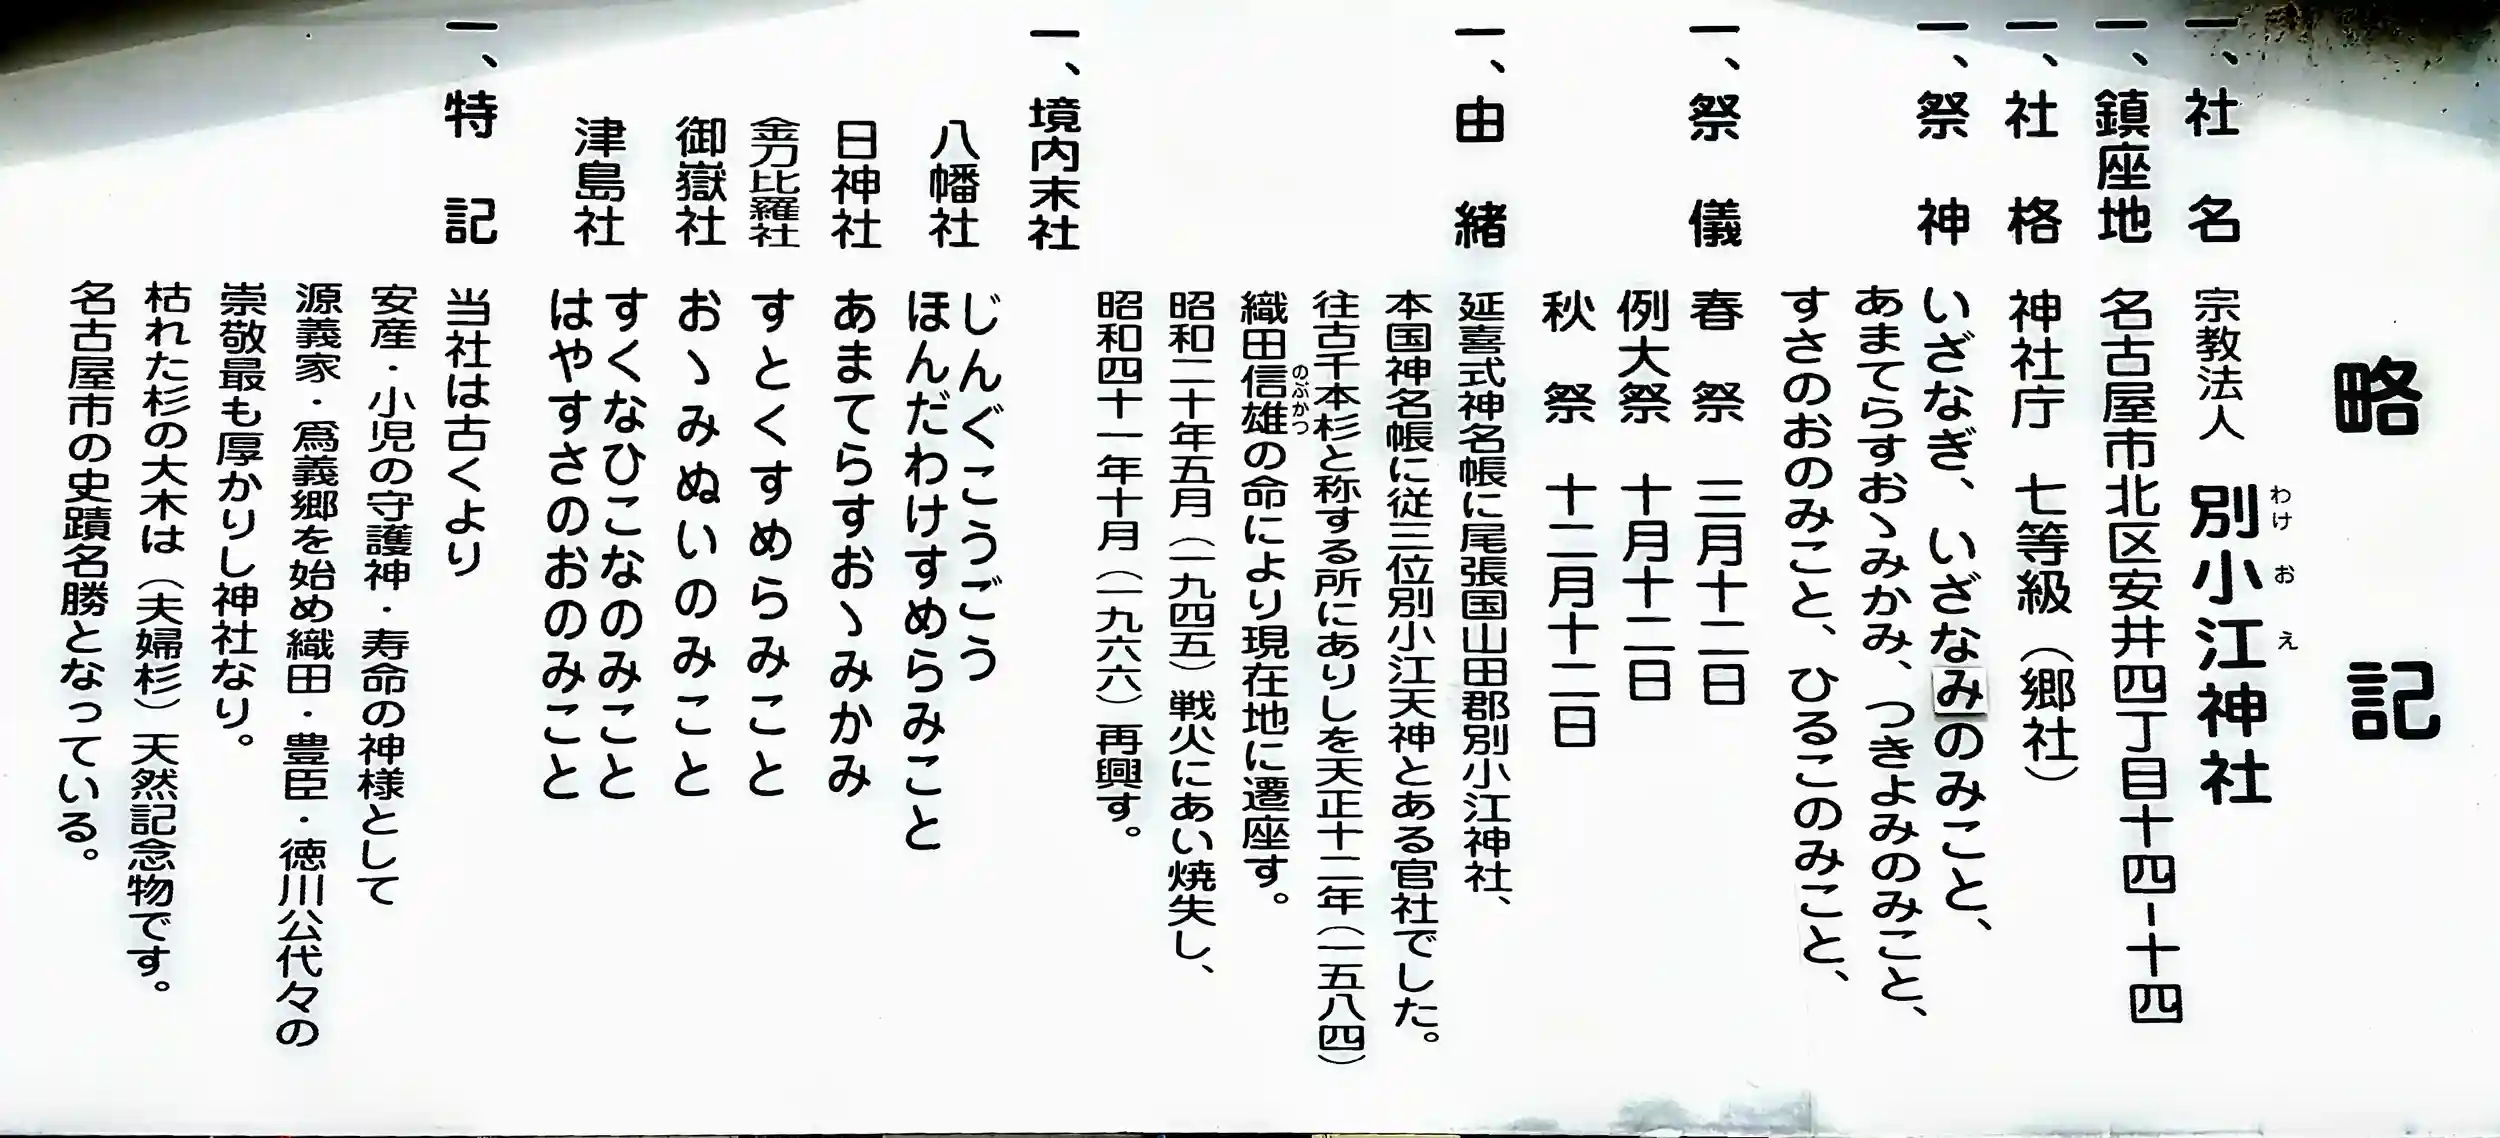 略記
一、社名 宗教法人 別小江神社
わけおえ
一、鎮座地 名古屋市北区安井四丁目十四-十四
一、社格 神社庁 七等級（郷社）
一、祭神 いざなぎ、いざなみのみこと、
あまてらすおゝみかみ、つきよみのみこと、
すさのおのみこと、ひるこのみこと、
一、祭儀 春祭 三月十二日
例大祭 十月十二日
秋祭 十二月十二日
一、由緒 延喜式神名帳に尾張国山田郡別小江神社、
本国神名帳に従三位別小江天神とある官社でした。
往古千本杉と称する所にありしを天正十二年（一五八四）
織田信雄の命により現在地に遷座す。
のぶかつ
昭和二十年五月（一九四五）戦火にあい焼失し、
昭和四十一年十月（一九六六）再興す。
一、境内末社
八幡社 じんぐこうごう
ほんだわけすめらみこと
日神社 あまてらすおゝみかみ
金刀比羅社 すとくすめらみこと
御嶽社 おゝみぬいのみこと
津島社 すくなひこなのみこと
はやすさのおのみこと
一、特記 当社は古くより
安産・小児の守護神・寿命の神様として
源義家・爲義郷を始め織田・豊臣・徳川公代々の
崇敬最も厚かりし神社なり。
枯れた杉の大木は（夫婦杉）天然記念物です。
名古屋市の史蹟名勝となっている。